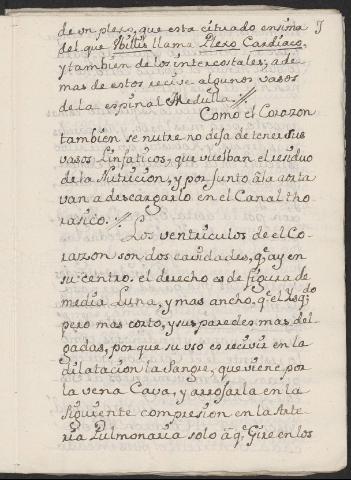 de un plexo, que esta cituado ensima
del que Willis llama Plexo Cardiaco,
y tambien de los intercostales; ade
mas de estos recive algunos vasos
de la espinal Medulla.//
Como el Corazon
tambien se nutre no deja de tener sus
vasos Linfaticos, que vuelban el residuo
de la Nutricion, y por junto â la aorta
van a descargarlo en el Canal tho
rasico.//
Los ventriculos de el Co-
razon son dos cavidades, qe. ay en
su centro. el derecho es de figura de
media Luna, y mas ancho, qe. el Ysqdo.
pero mas corto, y sus paredes mas del
gadas, porque su uso es recivir en la
dilatacion la Sangre, que viene por
la vena Cava, y arrojarla en la
siguiente compresion en la Arte
ria Pulmonaria solo â qe. Gire en los